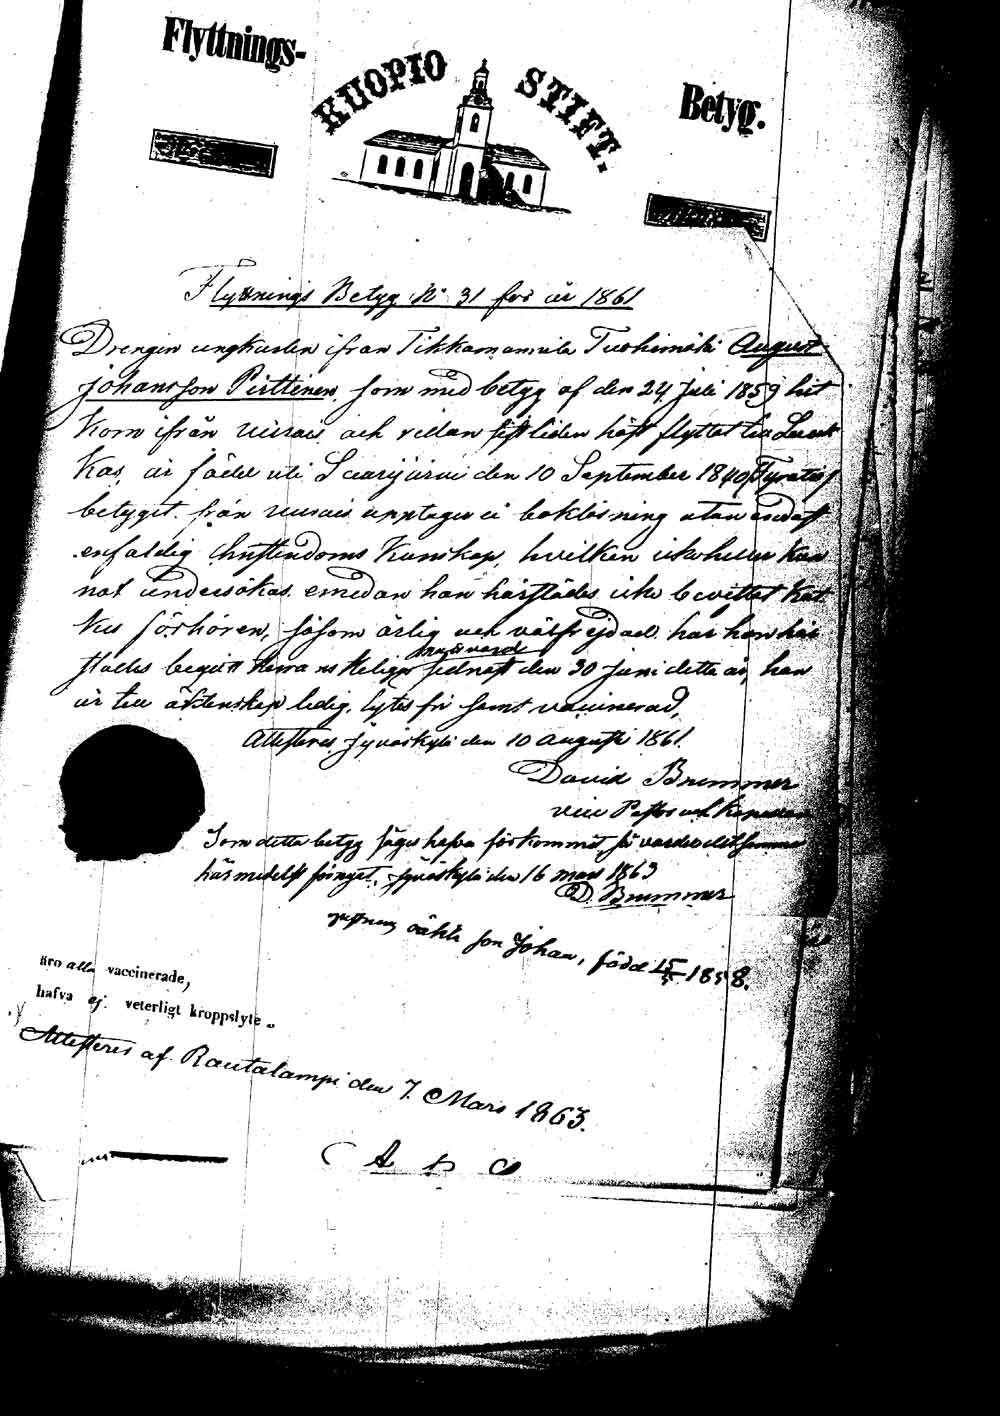 Flyttnings-
KUOPIO STIFT.
Betyg.
Flyttnings Betyg No 31 för år 1861
Drengen ungkarlen ifrån Tikkamannila Tuohimäki August
Johansson Pirttinen, som med betyg af den 24 Juli 1859 hit
kom ifrån och sedan sistliden höst flyttat till Lauk
kas, är född uti Saarijärvi den 10 September 1840,
betyget från upptager ei boklösning utan endast
enfaldig Christendoms Kunskap, hvilken icke heller kun
nat undersökas emedan han härstädes icke bevistat Kat
kes förhören, såsom ärlig och välfrejdad har han här
städes begått Herrans Heliga nattvard sednast den 30 Juni detta år, han
är till äktenskap ledig, lytes fri samt vaccinerad,
Attesteras Jyväskylä den 10 Augusti 1861.
David Brummer
vice Pastor och Kapellan
Som detta betyg säges hafva förkommit, så varder det samma
härmedelst förnyat. Jyväskylä den 16 mars 1863
D. Brummer
äkta son Johan, född 15/5 1858.
äro alla vaccinerade,
hafva ej veterligt kroppslyte.
Attesteres af Rautalampi den 7. Mars 1863.